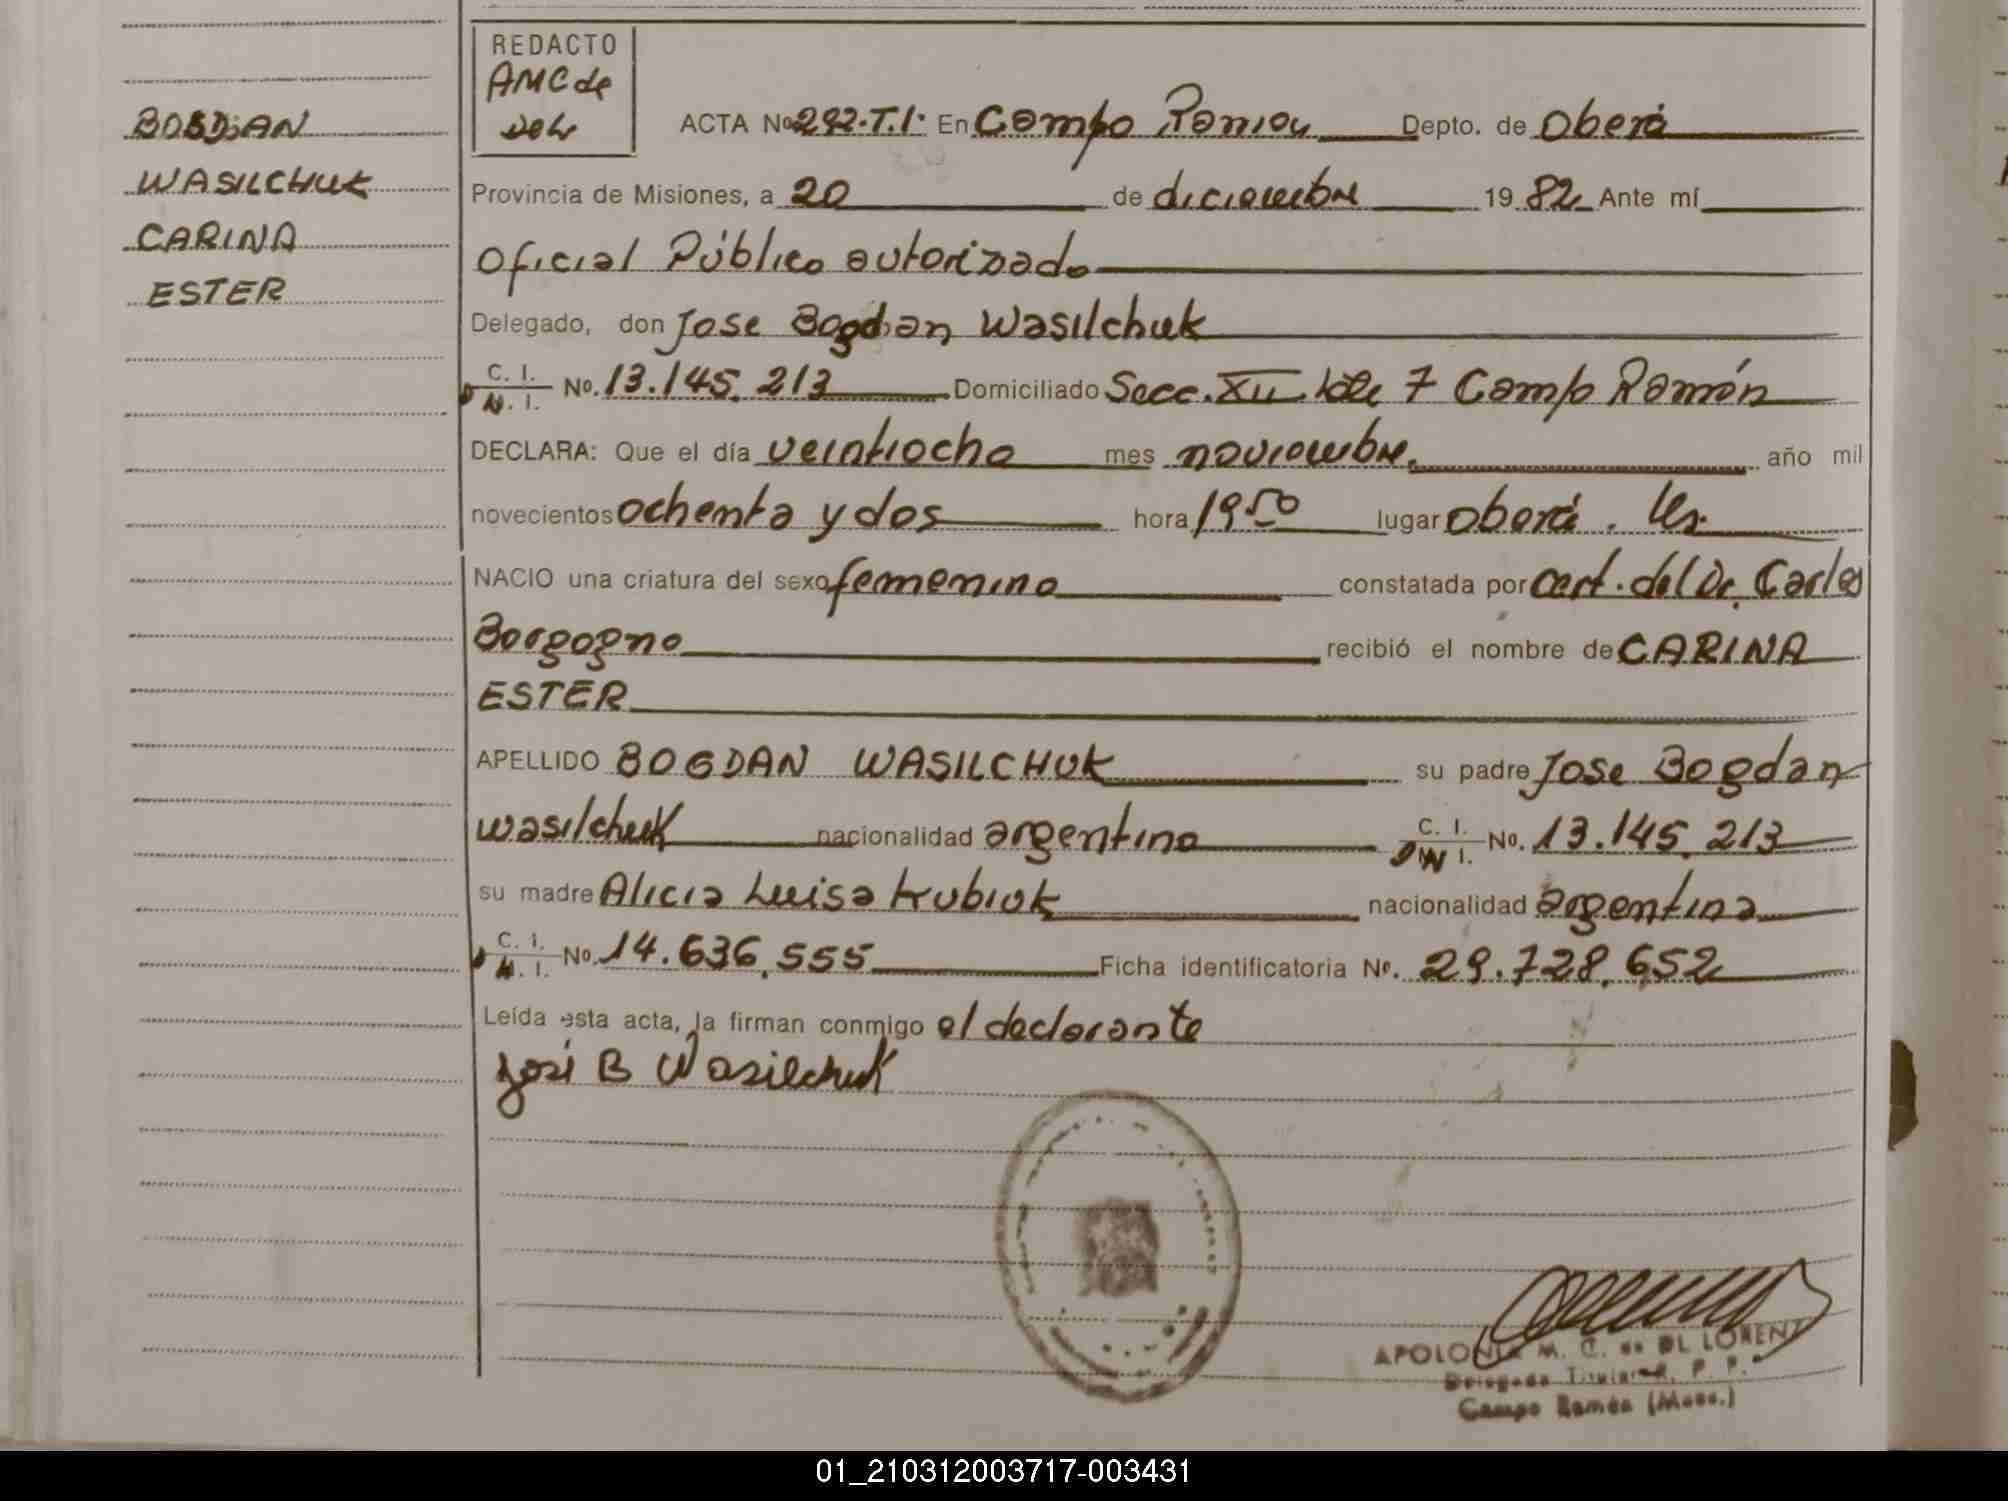 REDACTO
AMC de
BOGDAN
WASILCHUK
CARINA
ESTER
ACTA Nº 292.T.I. En Campo Ramon Depto. de Oberá
Provincia de Misiones, a 20 de diciembre 19 82 Ante mí
Oficial Público autorizado
Delegado, don Jose Bogdan Wasilchuk
C. I. N. I. No. 13.145.213 Domiciliado Secc. XII lote 7 Campo Ramón
DECLARA: Que el día veintiocho mes noviembre año mil
novecientos ochenta y dos hora 19 50 lugar Oberá.
NACIO una criatura del sexo femenino constatada por cert. del Dr. Carlos
Borgogno recibió el nombre de CARINA
ESTER
APELLIDO BOGDAN WASILCHUK su padre Jose Bogdan
Wasilchuk nacionalidad argentino C. I. N I. No. 13.145.213
su madre Alicia Luisa Kubiuk nacionalidad argentina
C. I. N. I. No. 14.636.555 Ficha identificatoria No. 29.728.652
Leída esta acta, la firman conmigo el declarante
José B Wasilchuk
APOLONIA M. C. de OL LORENT
Delegada Titular R. P. P.
Campo Ramón (Mnes.)
01_210312003717-003431